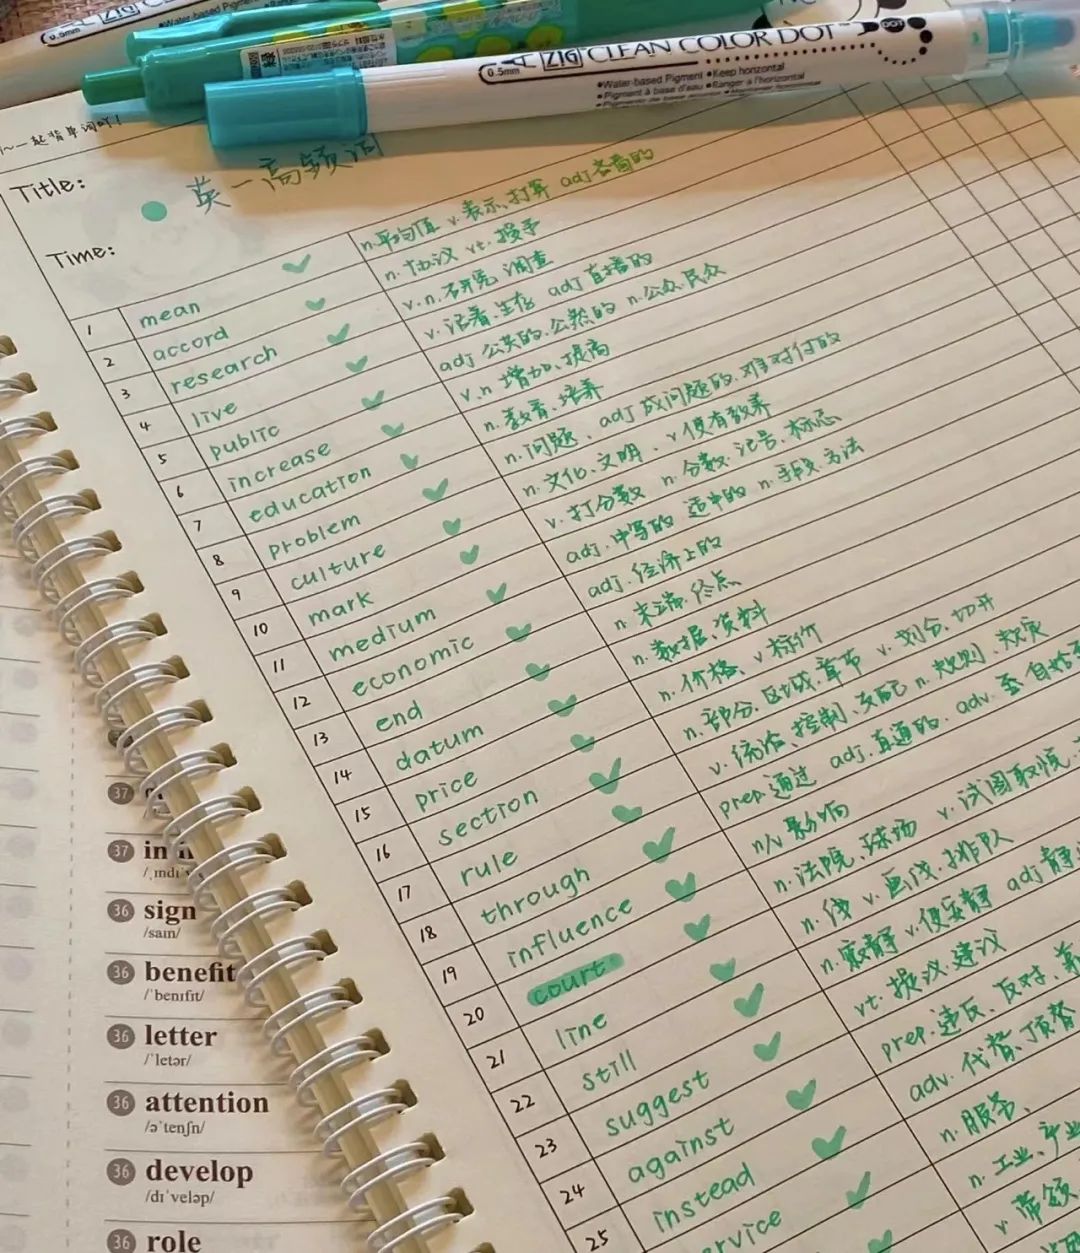 ZIG
0.5mm
ZIG CLEAN COLOR DOT
DOT
0.5mm
•Water-based Pigment •Keep horizontal
•Pigment à base d'eau •Ranger à l'horizontal
一起背单词吖!
Title:
英一高频词
Time:
1 mean n.平均值 v.表示、打算 adj吝啬的
2 accord n.协议 vt.授予
3 research v.n.研究 调查
4 live v.活着、生存 adj 直播的
5 public adj 公共的.公然的 n.公众.民众
6 increase v.n 增加、提高
7 education n.教育、培养
8 problem n.问题、adj 成问题的.难对付的
9 culture n.文化、文明、v使有教养
10 mark v.打分数 n.分数.记号.标志
11 medium adj.中等的 适中的 n.手段.方法
12 economic adj.经济上的
13 end n.末端.终点
14 datum n.数据、资料
15 price n.价格、v标价
16 section n.部分.区域.章节 v.划分、切开
17 rule v.统治、控制、支配 n.规则、规定
18 through prep.通过 adj.直通的. adv.至自始
19 influence n/v 影响
20 court n.法院、球场 v.试图取悦
21 line n.线 v.画线.排队
22 still n.寂静 v.使安静 adj静
23 suggest vt.提议.建议
24 against prep.违反、反对、
25 instead adv.代替、顶替
service n.服务、
n.工业、产业
v.带领
37
37
/ˌɪndɪ
36 sign
/saɪn/
36 benefit
/ˈbenɪfɪt/
36 letter
/ˈletər/
36 attention
/əˈtenʃn/
36 develop
/dɪˈveləp/
36 role